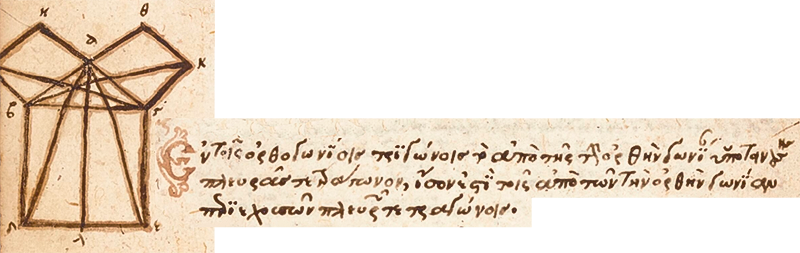 η θ
α
κ
β γ
Ἐν τοῖς ὀρθογωνίοις τριγώνοις τὸ ἀπὸ τῆς τὴν ὀρθὴν γωνίαν ὑποτεινούσης
πλευρᾶς τετράγωνον, ἴσον ἐστὶ τοῖς ἀπὸ τῶν τὴν ὀρθὴν γωνίαν
περιεχουσῶν πλευρῶν τετραγώνοις.
δ λ ε